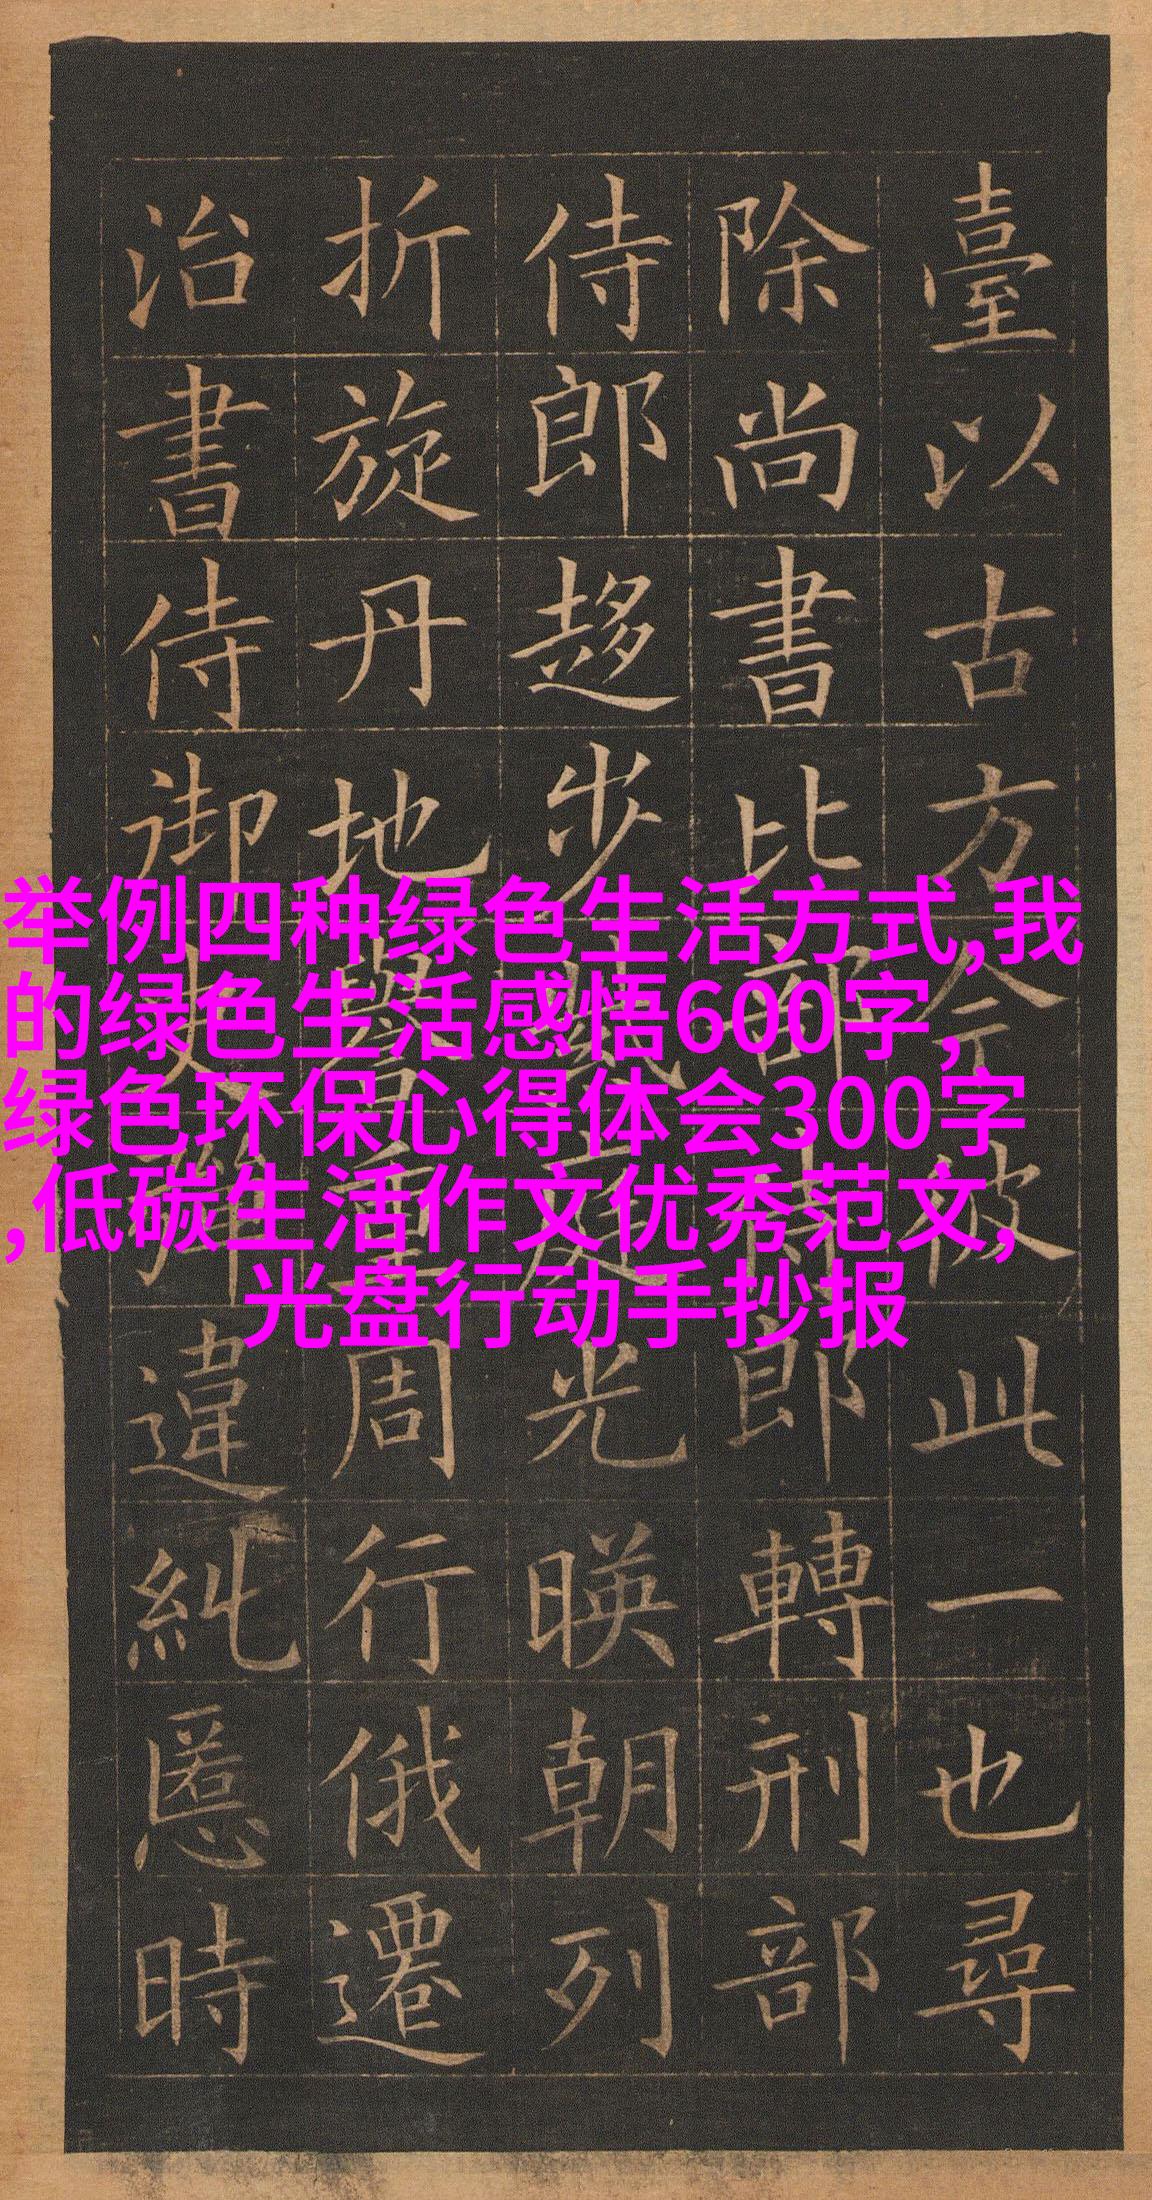 举例四种绿色生活方式,我
的绿色生活感悟600字,
绿色环保心得体会300字
,低碳生活作文优秀范文,
光盘行动手抄报
臺以古方今彼此一也尋
除尚書比部郎轉刑部
侍郎趍步庭光暎朝列
折旋丹地譽重周行俄遷
治書侍御史彈違糺慝時